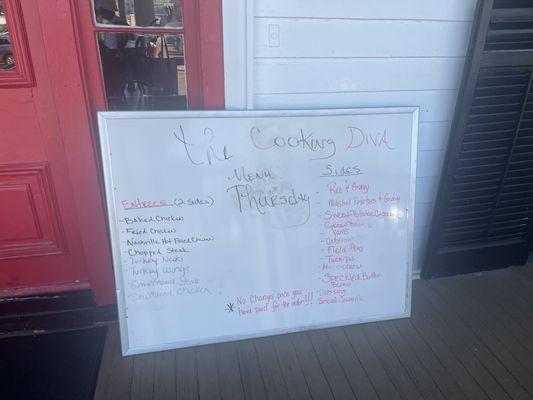 the Cooking Diva
Menu
Thursday
Entrees (2 sides)
- Baked Chicken
- Fried Chicken
- Nashville Hot Fried Chicken
- Chopped Steak
- Turkey Necks
- Turkey Wings
- Smothered Steak
- Smothered Chicken
Sides
- Rice & Gravy
- Mashed Potatoes & Gravy
- Sweet Potato
- Green Beans
- Yams
- Cabbage
- Field Peas
- Turnips
- Speckled Butter
Beans
* No Changes once you
have paid for the order!!!